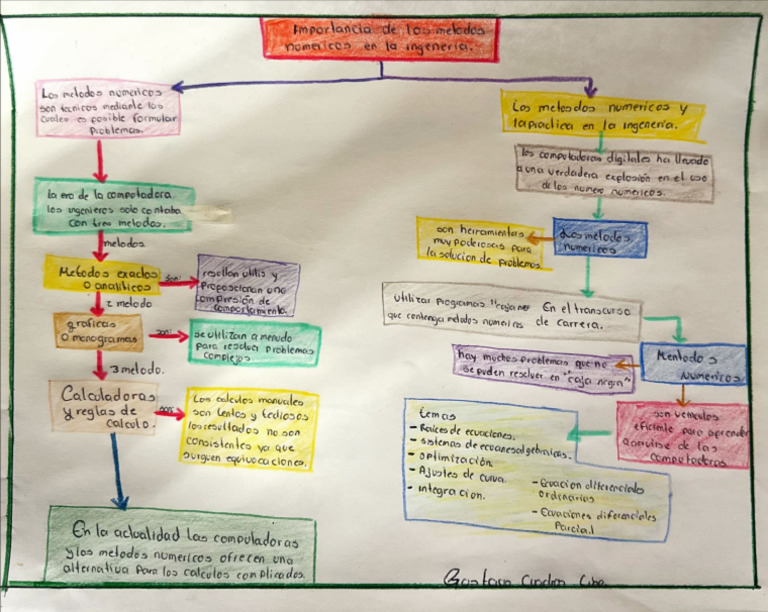 importancia de los metodos
numericos en la ingeneria.
Los metodos numericos
son tecnicos mediante los
cuales es posible formular
problemas.
la era de la computadora
los ingenieros solo contaba
con tres metodos.
metodos
Metodos exactos
o analiticos
son:
resultan utilis y
proposcionan una
compresión de
comportamiento.
2 metodo
graficas
o monogramas
son:
se utilizan a menudo
para resolver problemas
complejos
3 metodo.
Calculadoras
y reglas de
calculo.
son:
Los calculos manuales
son lentos y tediosos
los resultados no son
consistentes ya que
surguen equivocaciones.
En la actualidad las computadoras
y los metodos numericos ofrecen una
alternativa para los calculos complicados.
Los metosdos numericos y
la practica en la ingeneria.
los computadoras digitales ha llevado
a una verdadera explosión en el uso
de los numero numericos.
Los metodos
numericos
son herramientas
muy poderosas para
la solucion de problemas.
Utilizar programas "cajanes En el transcurso
que contenga metodos numerins de carrera.
Mentodos
Numericos
hay muchos problemas que no
se pueden resolver en "caja negra"
son vehiculos
eficiente para aprender
a servirse de las
computadoras
temas
- Raices de ecuaciones.
- sistemas de ecuanesalgebraicas.
- optimización.
- Ajustes de curva.
- integracion.
- Ecuacion diferenciales
ordinarias
- Ecuaciones diferenciales
Parcial
Gustavo